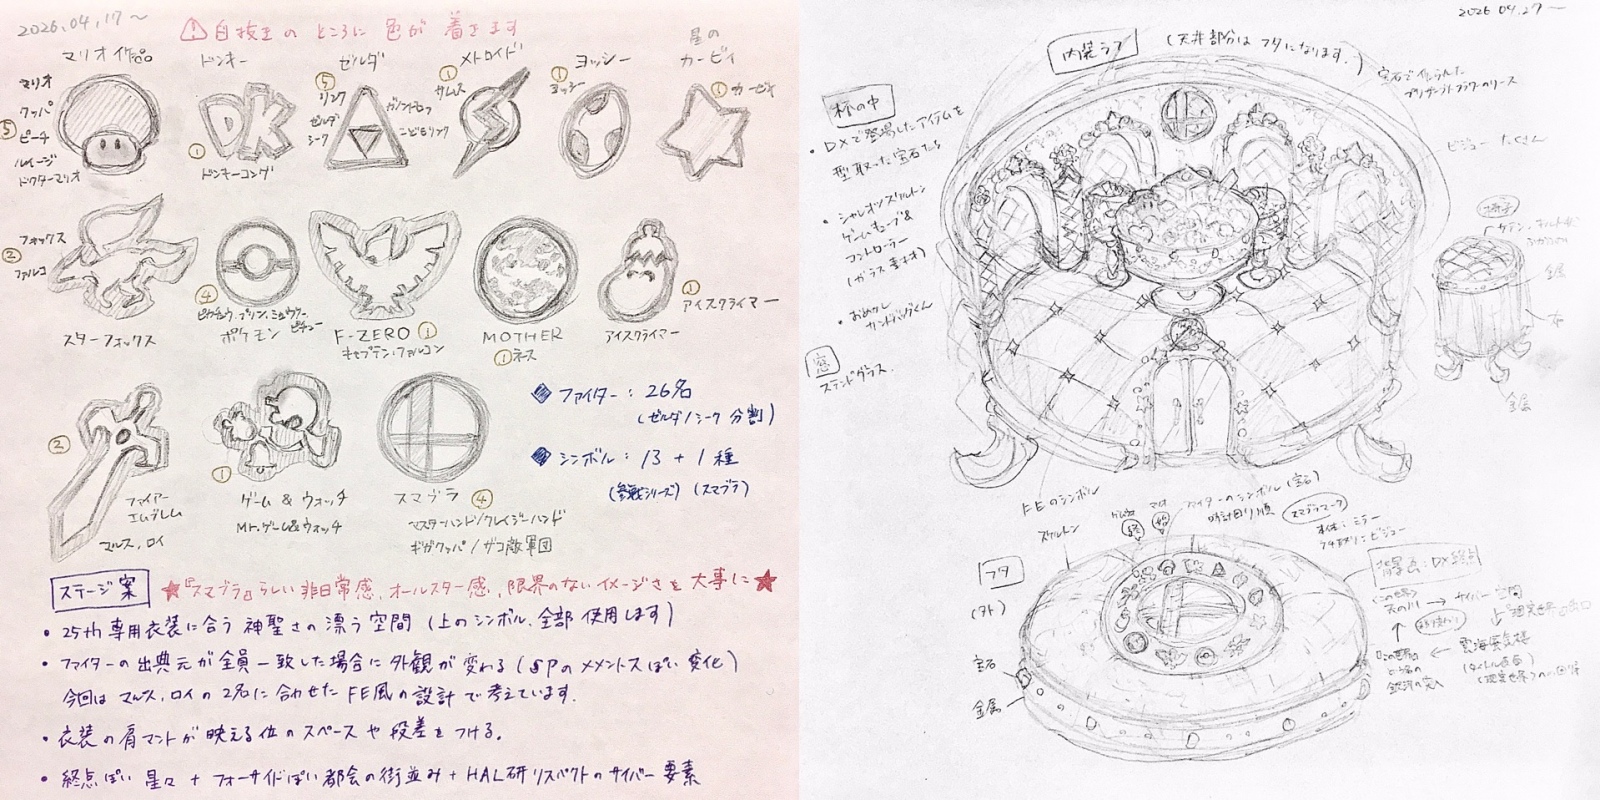 2026.04.17〜
⚠白抜きのところに色が着きます
マリオ作品
マリオ
クッパ
⑤ ピーチ
ルイージ
ドクターマリオ
ドンキー
DK
①
ドンキーコング
ゼルダ
⑤
リンク
ゼルダ
シーク
ガノンドロフ
こどもリンク
メトロイド
①
サムス
ヨッシー
①
ヨッシー
星の
カービィ
① カービィ
フォックス
②
ファルコ
スターフォックス
④
ピカチュウ、プリン、ミュウツー、
ピチュー
ポケモン
F-ZERO ①
キャプテン・ファルコン
MOTHER
① ネス
①
アイスクライマー
アイスクライマー
②
ファイアー
エムブレム
マルス、ロイ
①
ゲーム & ウォッチ
Mr.ゲーム&ウォッチ
スマブラ ④
マスターハンド/クレイジーハンド
ギガクッパ / ザコ敵軍団
◆ ファイター : 26名
(ゼルダ/シーク 分割)
◆ シンボル : 13 + 1 種
(参戦シリーズ) (スマブラ)
ステージ案
★『スマブラ』らしい非日常感、オールスター感、限界のないイメージさを大事に★
• 25th 専用衣装に合う 神聖さの漂う空間 (上のシンボル、全部使用します)
• ファイターの出典元が全員一致した場合に外観が変わる (5Pのメメントスぽい変化)
今回はマルス、ロイの2名に合わせた FE風の設計で考えています。
• 衣装の肩マントが映える位のスペースや段差をつける。
• 終点ぽい 星々 + フォーサイドぽい都会の街並み + HAL研リスペクトのサイバー要素
2026 04.27〜
内装ラフ
(天井部分はフタになります。)
宝石で作られた
プリザーブドフラワーのリース
ビジューたくさん
杯の中
• DXで登場したアイテムを
型取った宝石たち
• シャレオツスケルトン
ゲームキューブ&
コントローラー
(ガラス素材)
• おめかし
サンドバッグくん
窓
ステンドグラス
椅子
金属
木
金属
FEのシンボル
スケルトン
ファイターのシンボル (宝石)
時計回り順
スマブラマーク
本体: ミラー
フチ取り: ビジュー
フタ
(外)
宝石
金属
背景色: DX終点
天の川 → サイバー空間
雲海蜃気楼
(タイトル画面)